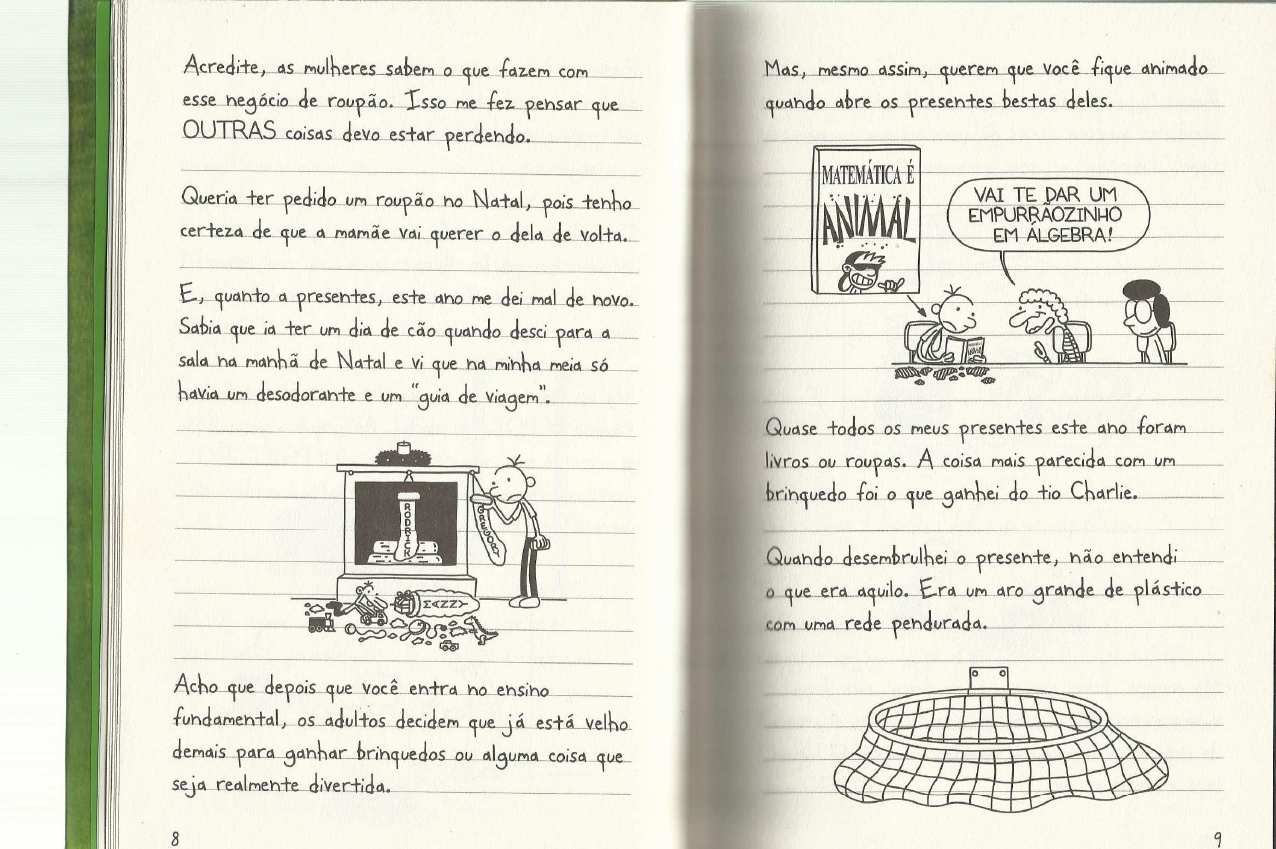 Acredite, as mulheres sabem o que fazem com
esse negócio de roupão. Isso me fez pensar que
OUTRAS coisas devo estar perdendo.
Queria ter pedido um roupão no Natal, pois tenho
certeza de que a mamãe vai querer o dela de volta.
E, quanto a presentes, este ano me dei mal de novo.
Sabia que ia ter um dia de cão quando desci para a
sala na manhã de Natal e vi que na minha meia só
havia um desodorante e um "guia de viagem".
RODRICK
GREGORY
MANNY
Acho que depois que você entra no ensino
fundamental, os adultos decidem que já está velho
demais para ganhar brinquedos ou alguma coisa que
seja realmente divertida.
8
Mas, mesmo assim, querem que você fique animado
quando abre os presentes bestas deles.
MATEMÁTICA É
ANIMAL
VAI TE DAR UM
EMPURRÃOZINHO
EM ÁLGEBRA!
Quase todos os meus presentes este ano foram
livros ou roupas. A coisa mais parecida com um
brinquedo foi o que ganhei do tio Charlie.
Quando desembrulhei o presente, não entendi
o que era aquilo. Era um aro grande de plástico
com uma rede pendurada.
9